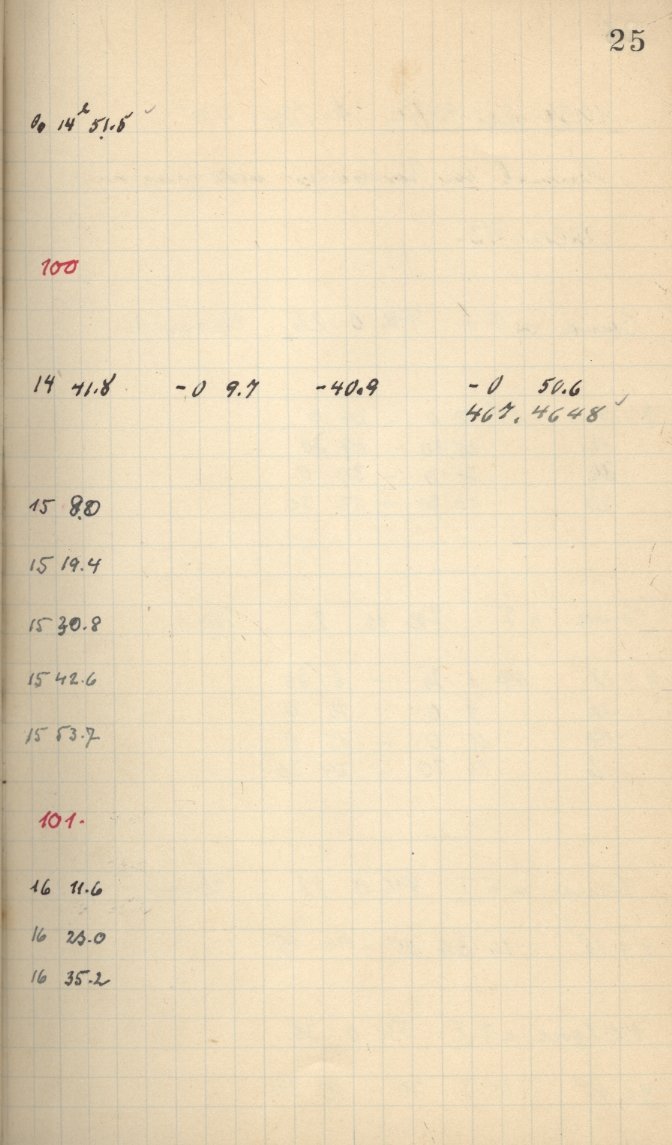 25
14ʰ 51.5 ✓
100
14 41.8 -0 9.7 -40.9 -0 50.6
467.4648 ✓
15 8.0
15 19.4
15 30.8
15 42.6
15 53.7
101.
16 11.6
16 23.0
16 35.2